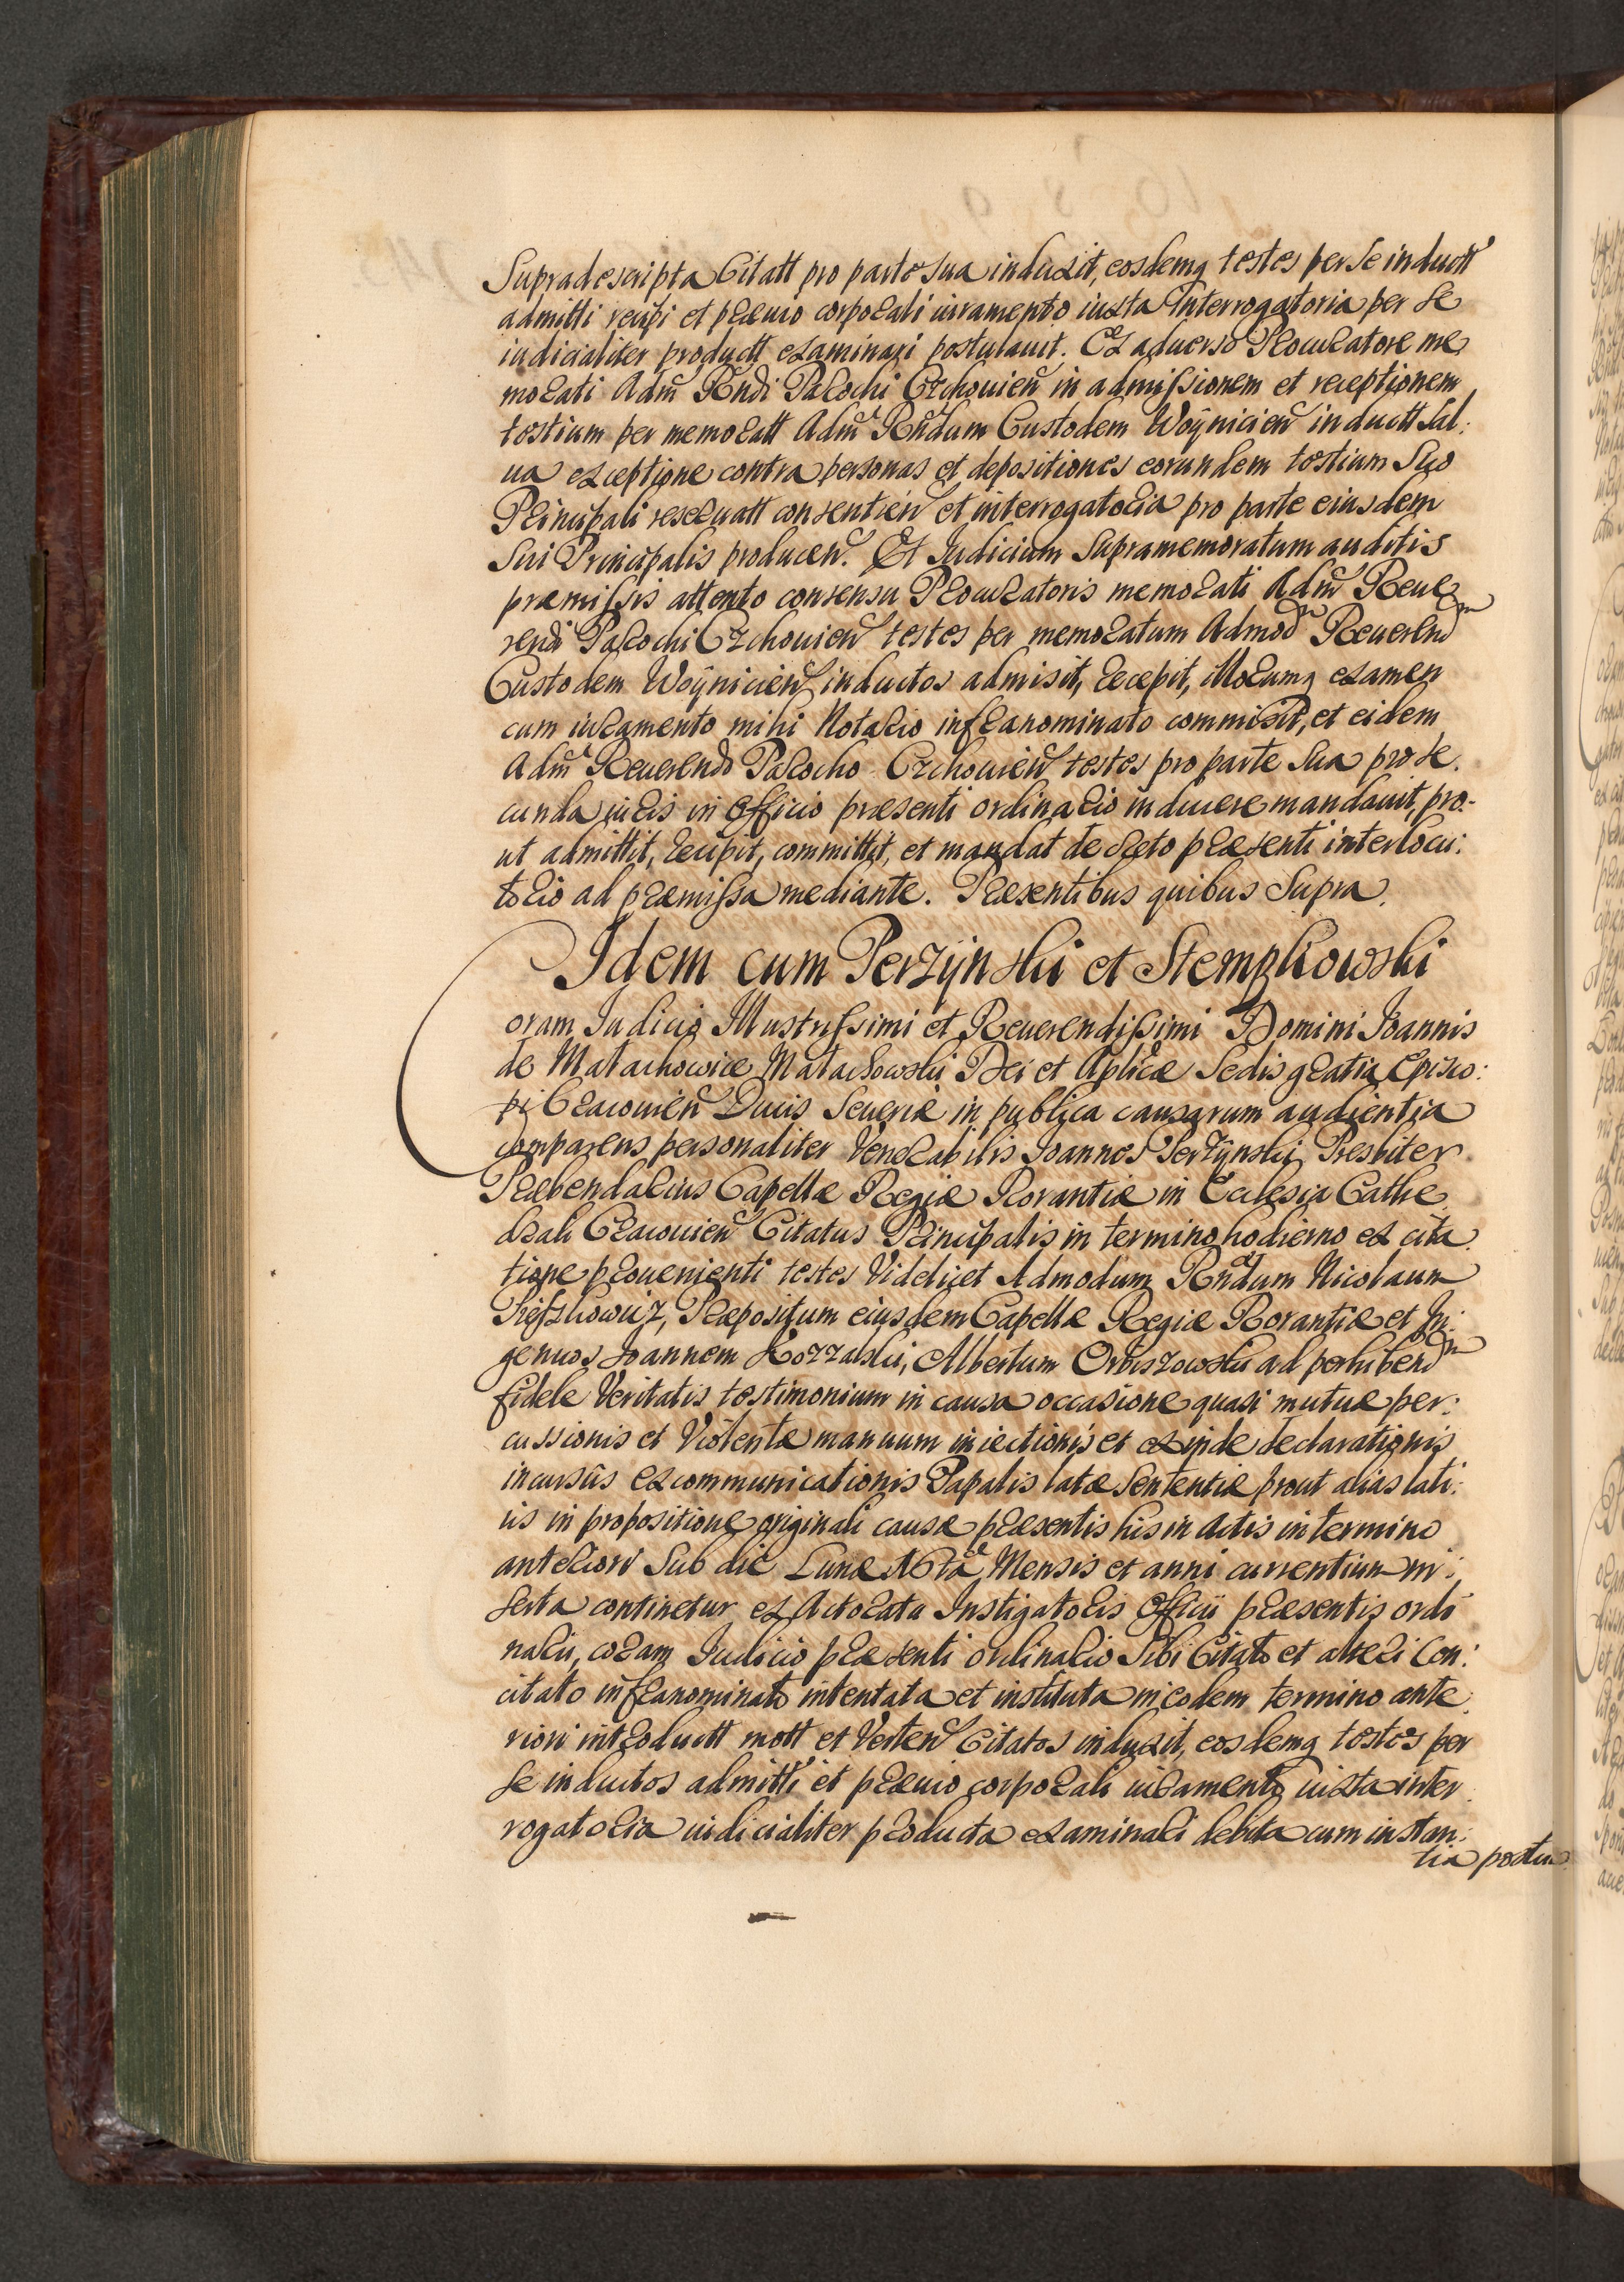 Supradescripta Citatt pro parte sua induxit, eosdemq testes per se inductt
admitti recipi et præuio corporali iuramento iuxta Interrogatoria per se
iudicialiter productt examinari postulauit. Ex aduerso Procuratore me
morati Adm̃ Rñdi Parochi Czchouien̄ in admissionem et receptionem
testium per memoratt Adm̃ Rñdum Custodem Woÿnicien̄ inductt Sal:
ua exceptione contra personas et depositiones eorundem testium Suo
Principali reseruatt consentien̄ et interrogatoria pro parte eiusdem
Sui Principalis producen̄. Et Iudicium Supramemoratum auditis
præmissis attento consensu Procuratoris memorati Adm̃ Reue
rendi Parochi Czchouien̄ testes per memoratum Admodm Reuerendm
Custodem Woÿnicien̄ inductos admisit, recepit, illorumq examen
cum iuramento mihi Notario infranominato commisit, et eidem
Adm̃ Reuerendo Parocho Czchouien̄ testes pro parte Sua pro se.
cunda iuris in Officio præsenti ordinario inducere mandauit, pro-
ut admittit, recipit, committit, et mandat decreto præsenti interlocu:
torio ad præmissa mediante. Præsentibus quibus Supra.
Idem cum Perzÿnski et Stempkowski
Coram Iudicio Illustrissimi et Reuerendissimi Domini Ioannis
de Małachowice Małachowski Dei et Aplicæ Sedis gratia Episco:
pi Cracouien̄ Ducis Seueriæ in publica causarum audientia
comparens personaliter Venerabilis Ioannes Perzÿnski Presbiter
Præbendarius Capellæ Regiæ Rorantiæ in Ecclesia Cathe
drali Cracouien̄ Citatus Principalis in termino hodierno ex cita
tione prouenienti testes Videlicet Admodum Rñdum Nicolaum
Præpositum eiusdem Capellæ Regiæ Rorantiæ et In:
genuos Ioannem Albertum ad perhibendm
fidele Veritatis testimonium in causa occasione quasi mutuæ per:
cussionis et Violentæ manuum iniectionis et exinde declarationis
incursûs excommunicationis Papalis latæ Sententiæ prout alias lati:
ùs in propositione originali causæ præsentis his in Actis in termino
anteriori Sub die Lunæ Mensis et anni currentium in:
serta continetur ex Actorata Instigatoris Officii præsentis ordi
narii, coram Iudicio præsenti ordinario Sibi Citato et alteri Con:
citato infranominato intentata et instituta in eodem termino ante:
riori introductt mott et Verten̄ Citatos induxit, eosdemq testes per
se inductos admitti et præuio corporali iuramento iuxta inter
rogatoria iudicialiter producta examinari debita cum instan:
tia postu